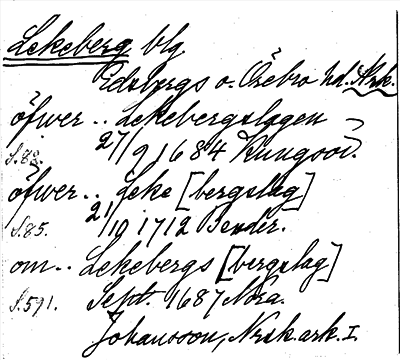 Lekeberg blg
Edsbergs o. Örebro hd. Nrk.
öfwer .. Lekebergslagen
S. 88. 27/9 1684 Kungsör.
öfwer .. Leke [bergslag]
S. 85. 21/10 1712 Bender.
om .. Lekebergs [bergslag]
S. 591. Sept. 1687 Nora.
Johansson, Nrsk ark. I.